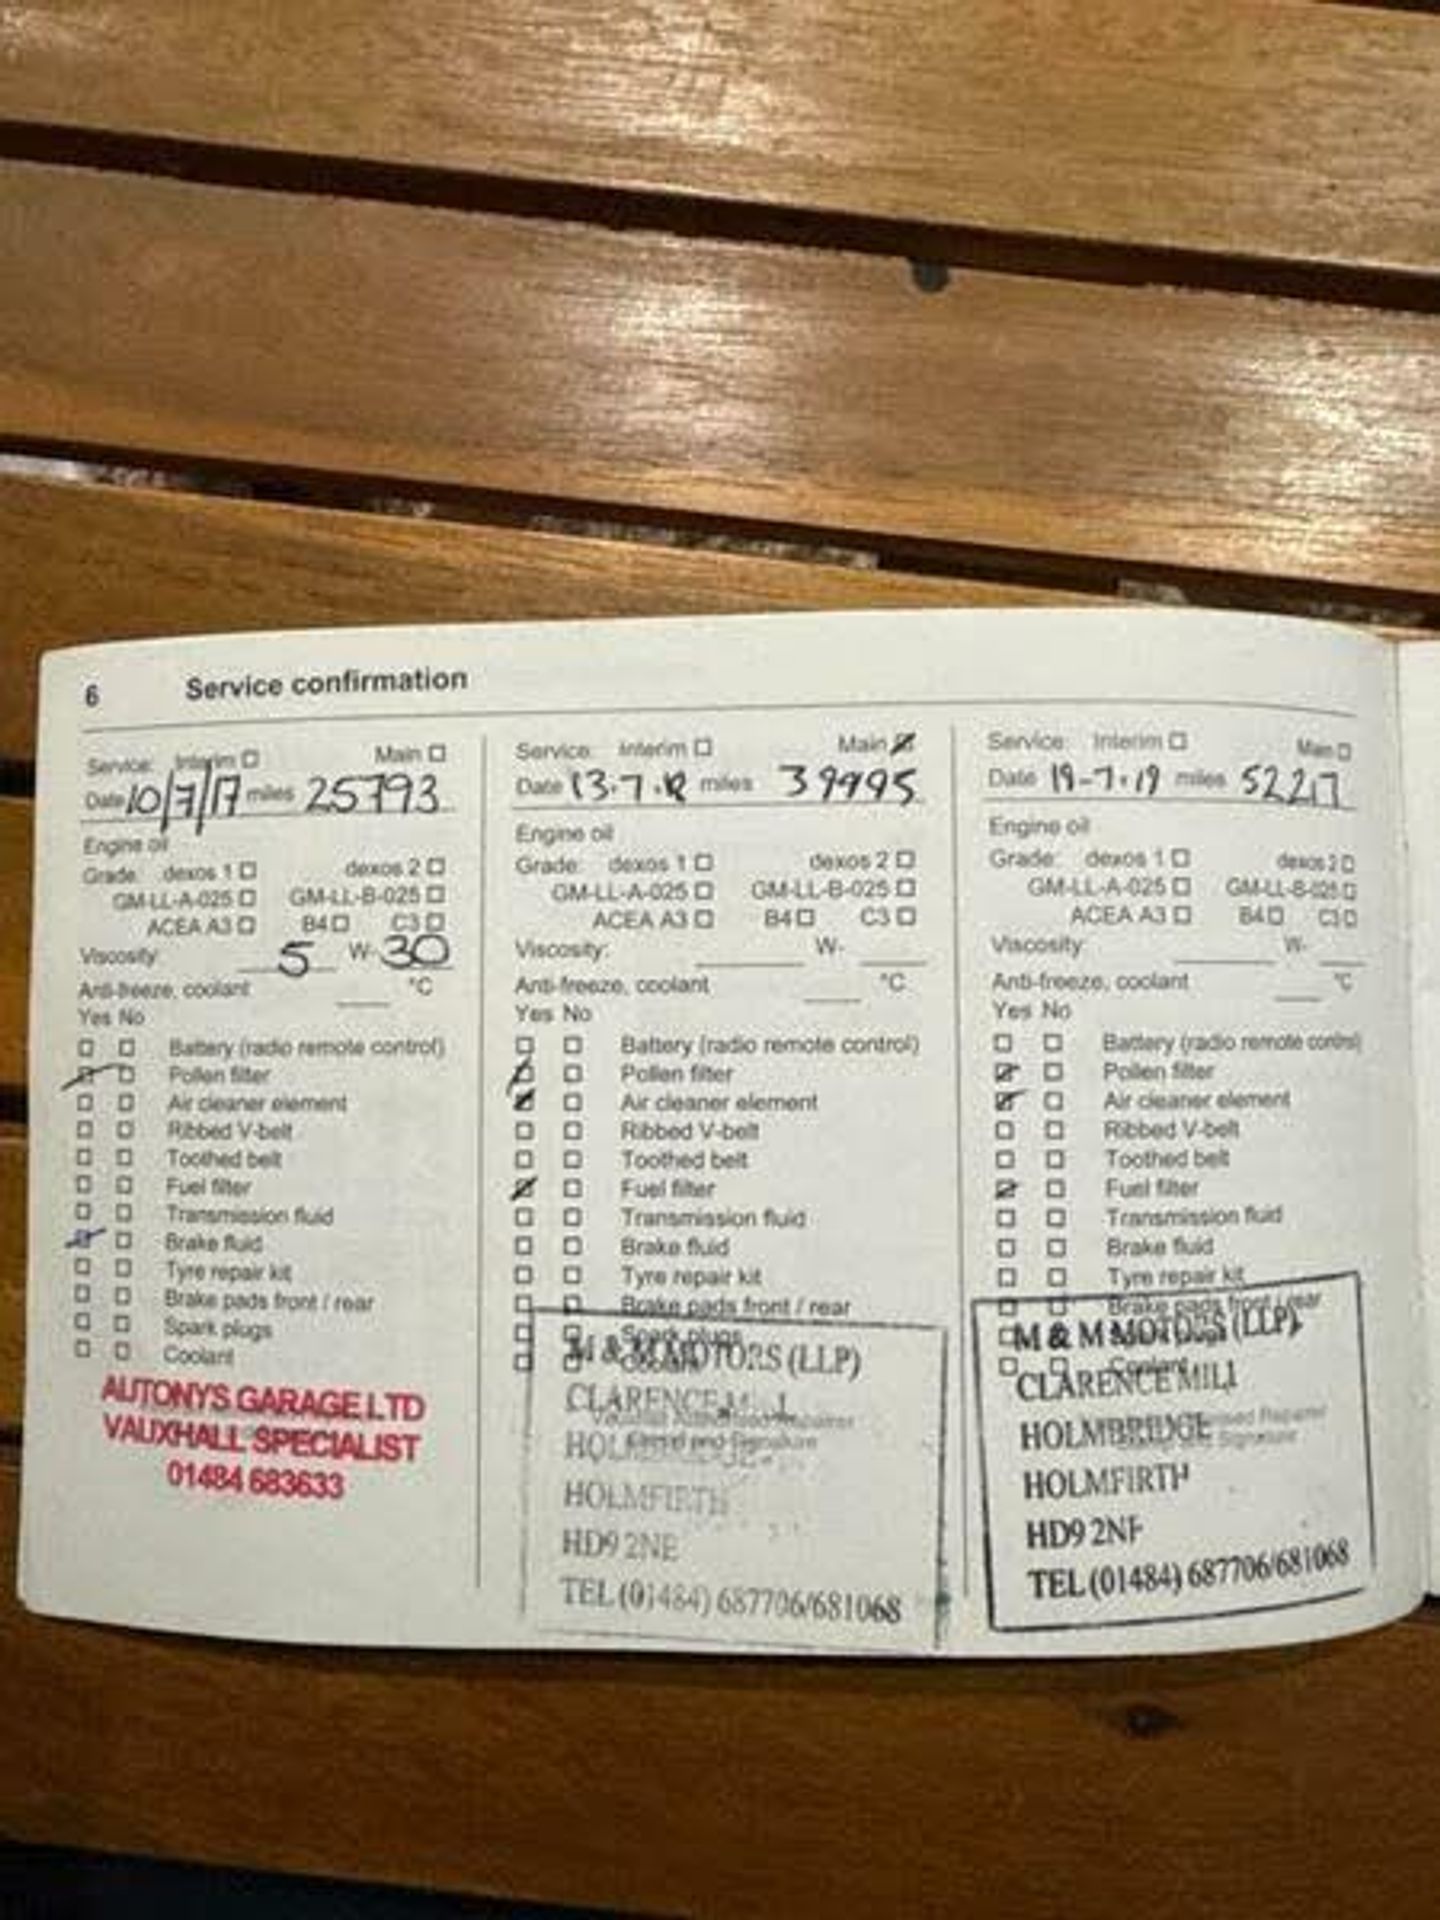 6 Service confirmation
Service: Interim Main
Date 10/7/17 miles 25793
Engine oil
Grade: dexos 1 dexos 2
GM-LL-A-025 GM-LL-B-025
ACEA A3 B4 C3
Viscosity: 5 W- 30
Anti-freeze, coolant °C
Yes No
Battery (radio remote control)
Pollen filter
Air cleaner element
Ribbed V-belt
Toothed belt
Fuel filter
Transmission fluid
Brake fluid
Tyre repair kit
Brake pads front / rear
Spark plugs
Coolant
AUTONYS GARAGE LTD
VAUXHALL SPECIALIST
01484 683633
Service: Interim Main
Date 13.7.18 miles 39995
Engine oil
Grade: dexos 1 dexos 2
GM-LL-A-025 GM-LL-B-025
ACEA A3 B4 C3
Viscosity: W-
Anti-freeze, coolant °C
Yes No
Battery (radio remote control)
Pollen filter
Air cleaner element
Ribbed V-belt
Toothed belt
Fuel filter
Transmission fluid
Brake fluid
Tyre repair kit
Brake pads front / rear
Spark plugs
Coolant
M & M MOTORS (LLP)
CLARENCE
Vauxhall Authorised Repairer
Stamp and Signature
HOLMFIRTH
HD9 2NE
TEL (01484) 687706/681068
Service: Interim Main
Date 19-7.19 miles 52217
Engine oil
Grade: dexos 1 dexos 2
GM-LL-A-025 GM-LL-B-025
ACEA A3 B4 C3
Viscosity: W-
Anti-freeze, coolant °C
Yes No
Battery (radio remote control)
Pollen filter
Air cleaner element
Ribbed V-belt
Toothed belt
Fuel filter
Transmission fluid
Brake fluid
Tyre repair kit
Brake pads front / rear
M & M MOTORS (LLP)
Coolant
CLARENCE MILL
HOLMBRIDGE
Repairer
Signature
HOLMFIRTH
HD9 2NF
TEL (01484) 687706/681068